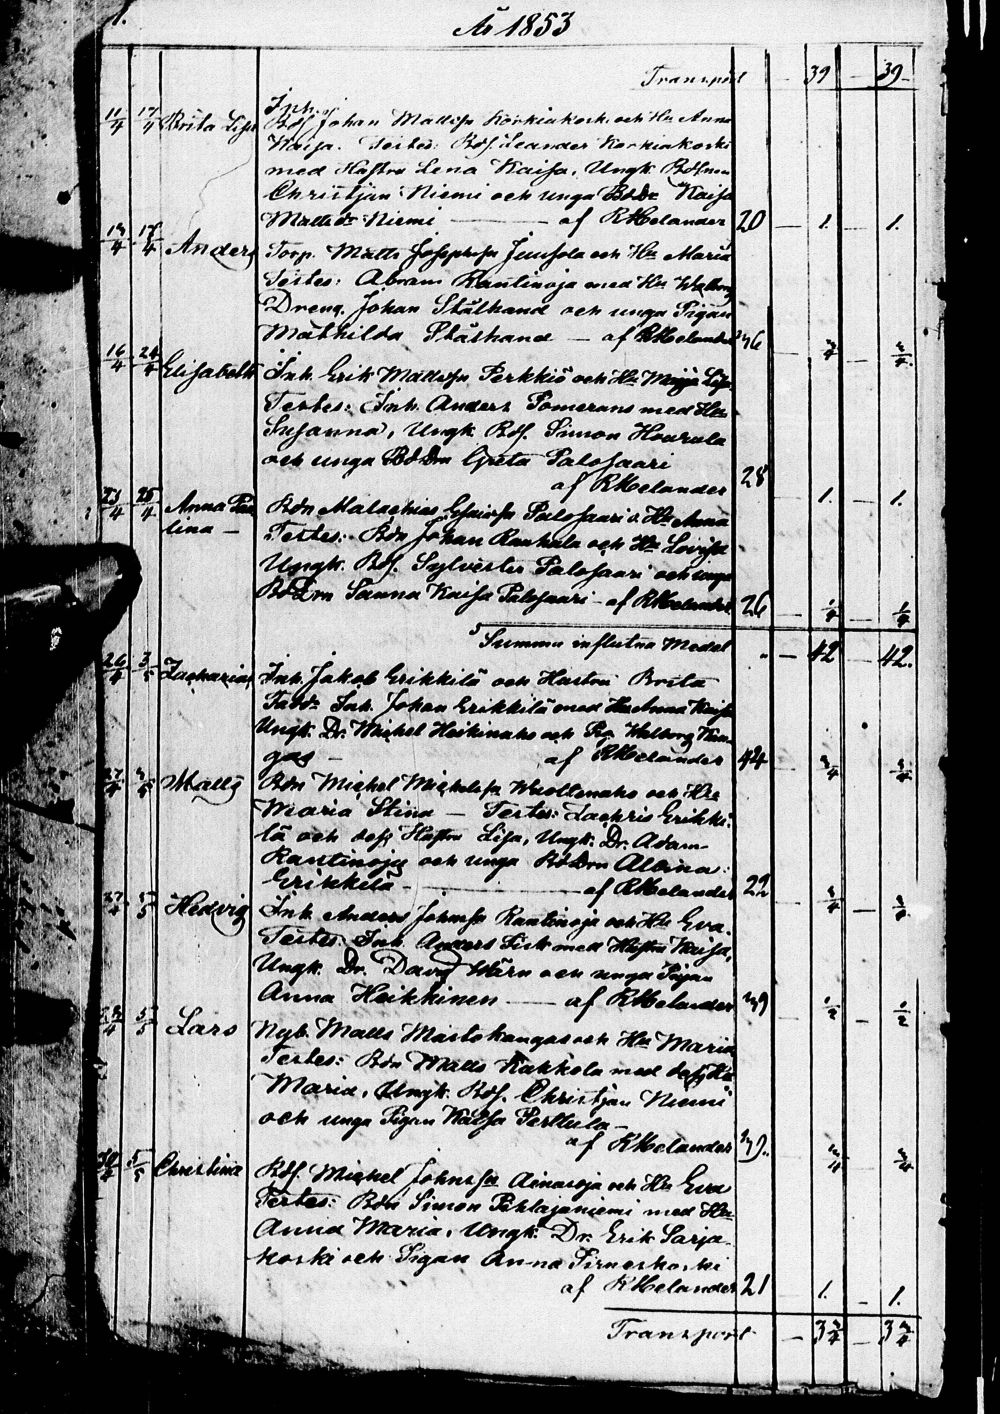 1.
År 1853
Transport — 39 — 39
Inh.
11/4 17/4 Brita Lisa Bdf Johan Mattss Korkiakoski och Hu Anna
Kaisa. Testes: Bdf. Leander Korkiakoski
med Hustru Lena Kaisa, Ungk. Bdfmn
Christjan Niemi och unga BdDr Kaisa
Mattsdr Niemi — af RHelander 20 — 1. — 1.
13/4 17/4 Anders Torp. Matts Josephss Junsola och Hu Maria
Testes: Abram Rautinoja med Hu Walborg
Dreng. Johan Stålhand och unga Pigan
Mathilda Stålhand — af RHelander 36 — 3/4 — 3/4
16/4 24/4 Elisabeth Inh. Erik Mattss Perkkiö och Hu Maija Lisa
Testes: Inh. Anders Pomerans med Hu
Susanna, Ungk. Bdf. Simon Hourula
och unga BdDn Greta Palosaari
af RHelander 28 — 1. — 1.
23/4 25/4 Anna Pau Bdn Malachias Esaiass Palosaari o. Hu Anna
lina — Testes: Bdn Johan Raukala och Hu Lovisa
Ungk. Bdf. Sylvester Palosaari och unga
BdDrn Sanna Kaisa Palosaari — af RHelander 26 — 1/4 — 1/4
Summa influtna Medel — 42 — 42.
26/4 3/5 Zacharias Inh. Jakob Erikkilä och Hustru Brita
Fadd. Inh. Johan Erikkilä med Hu Anna Kaisa
Ungk. Dr. Michel Heikinaho och Pig. Walborg Kan-
gas — af RHelander 44 — 3/4 — 3/4
27/4 3/5 Matts Bdn Michel Michelss Wuollenaho och Hu
Maria Stina — Testes: Zachris Erikki-
lä och dess Hustru Lisa, Ungk. Dr. Adam
Rautinoja och unga BdDrn Albina
Erikkilä — af RHelander 22 — 3/4 — 3/4
27/4 5/5 Hedvig Inh. Anders Johnss Rautinoja och Hu Eva.
Testes: Inh. Anders Fisk med Hustru Kaisa,
Ungk. Dr. David Wärn och unga Pigan
Anna Heikkinen — af RHelander 39 — 1/2 — 1/2
28/4 5/5 Lars Nyb. Matts Mastokangas och Hu Maria
Testes: Bdn Matts Kakkola med dess Hu
Maria, Ungk. Bdf. Christjan Niemi
och unga Pigan Kaisa Perttula —
af RHelander 39. — 3/4 — 3/4
30/4 5/5 Christina Bdf. Michel Johnss Ainasoja och Hu Eva
Testes: Bdn Simon Pihlajaniemi med Hu
Anna Maria, Ungk. Dr. Erik Sarja-
koski och Pigan Anna Sirneskoski
af RHelander 21 — 1. — 1.
Transport — 3 3/4 — 3 3/4